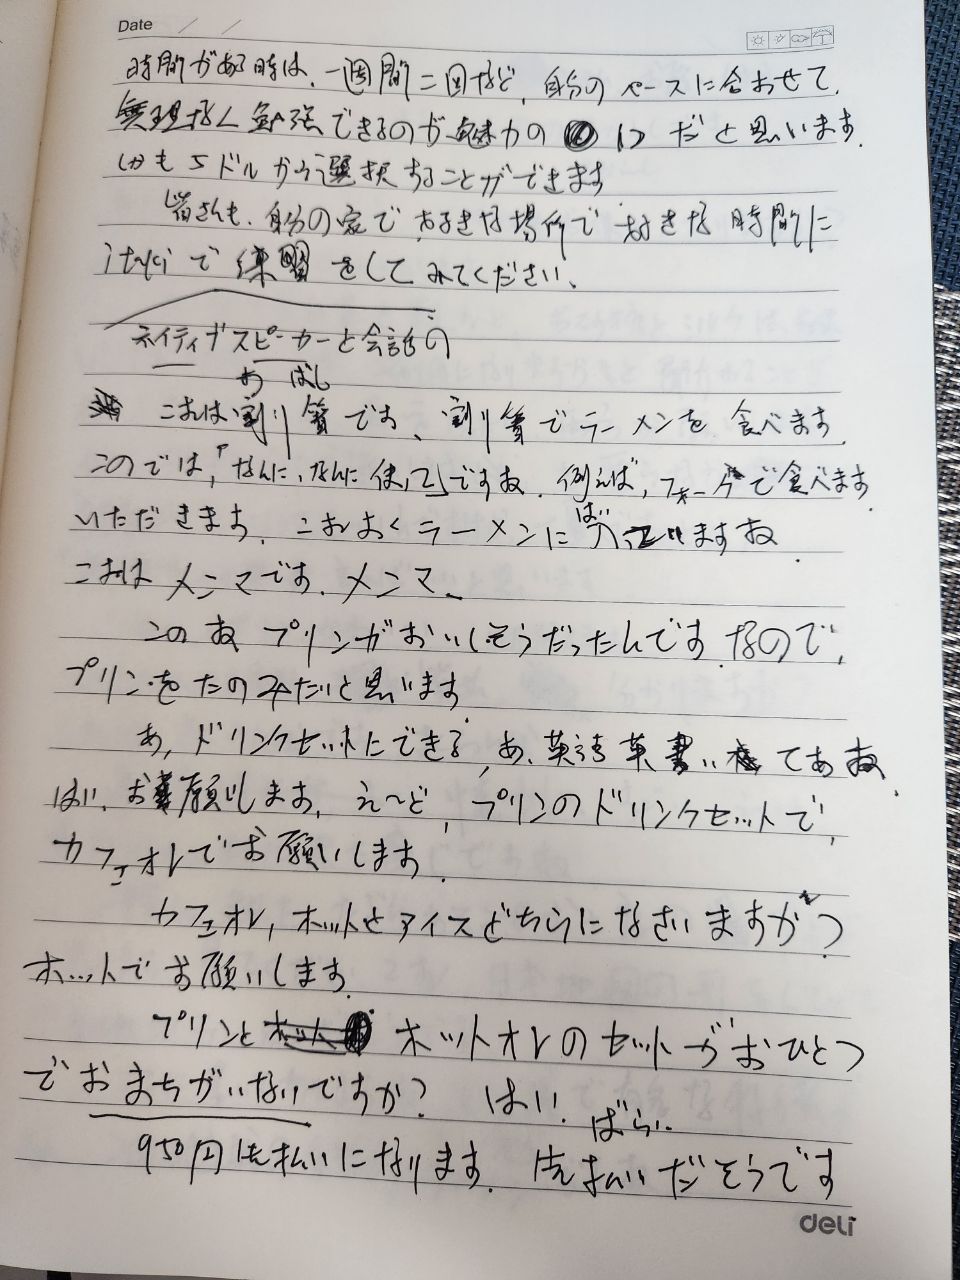 Date / /
時間がある時は、一週間二回など、自分のペースに合わせて、
無理なく勉強できるのが魅力の 1つだと思います。
しかも5ドルから選択することができます
皆さんも、自分の家で好きな場所で好きな時間に
italkiで練習をしてみてください、
ネイティブスピーカーと会話の
わ ばし
これは割り箸です、割り箸でラーメンを食べます。
このでは、「なんに、なんに使って」ですね、例えば、フォークで食べます
いただきます、これよくラーメンに入っていますね
はい
これは メンマです、メンマ、
このね プリンがおいしそうだったんです なので、
プリンをたのみたいと思います
あ、ドリンクセットにできる、あ、英語 書い てあね
はい、お願いします、え〜と、プリンのドリンクセットで、
カフェオレでお願いします、
カフェオレ、ホットとアイスどちらになさいますか?
ホットでお願いします、
プリンと ホットオレのセットがおひとつ
でおまちがいないですか? はい!
ばらい
950円先払いになります、先払いだそうです
deli